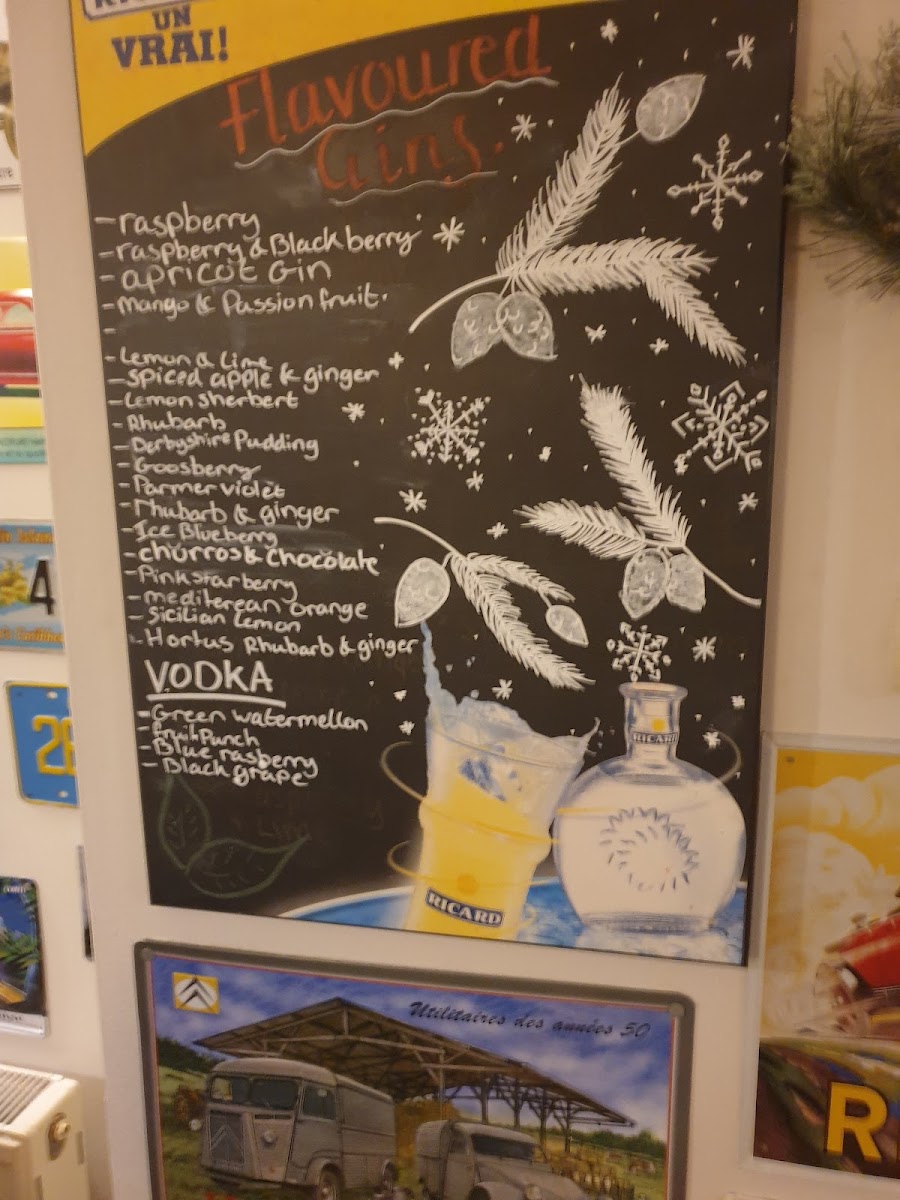 UN
VRAI!
Flavoured
Gins.
-raspberry
-raspberry & Blackberry
-apricot Gin
-mango & Passion fruit.
-
-Lemon & Lime
-spiced apple & ginger
-Lemon sherbert
-Rhubarb
-Derbyshire Pudding
-Goosberry
-Parmer violet
-Rhubarb & ginger
-Ice Blueberry
-churros & chocolate
-Pinkstarberry
-mediterean orange
-Sicilian Lemon
-Hortus Rhubarb & ginger
VODKA
-Green watermellon
-fruit Punch
-Blue rasberry
-Black grape
RICARD
RICARD
Utilitaires des années 50
4
R